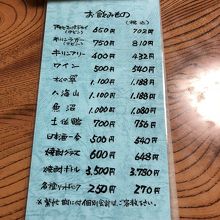 お飲みもの
(税込)
650円 702円
(中ビン)
キリンラガー 750円 810円
(中ビン)
キリンフリー 400円 432円
ワイン 500円 540円
松の翠 1.100円 1.188円
八海山 1.100円 1.188円
魚沼 1.000円 1.080円
土佐鶴 700円 756円
日本酒一合 500円 540円
焼酎グラス 600円 648円
焼酎ボトル 3.500円 3.780円
各種ソフトドリンク 250円 270円
※繁忙期に付個別会計は、ご容赦下さい。